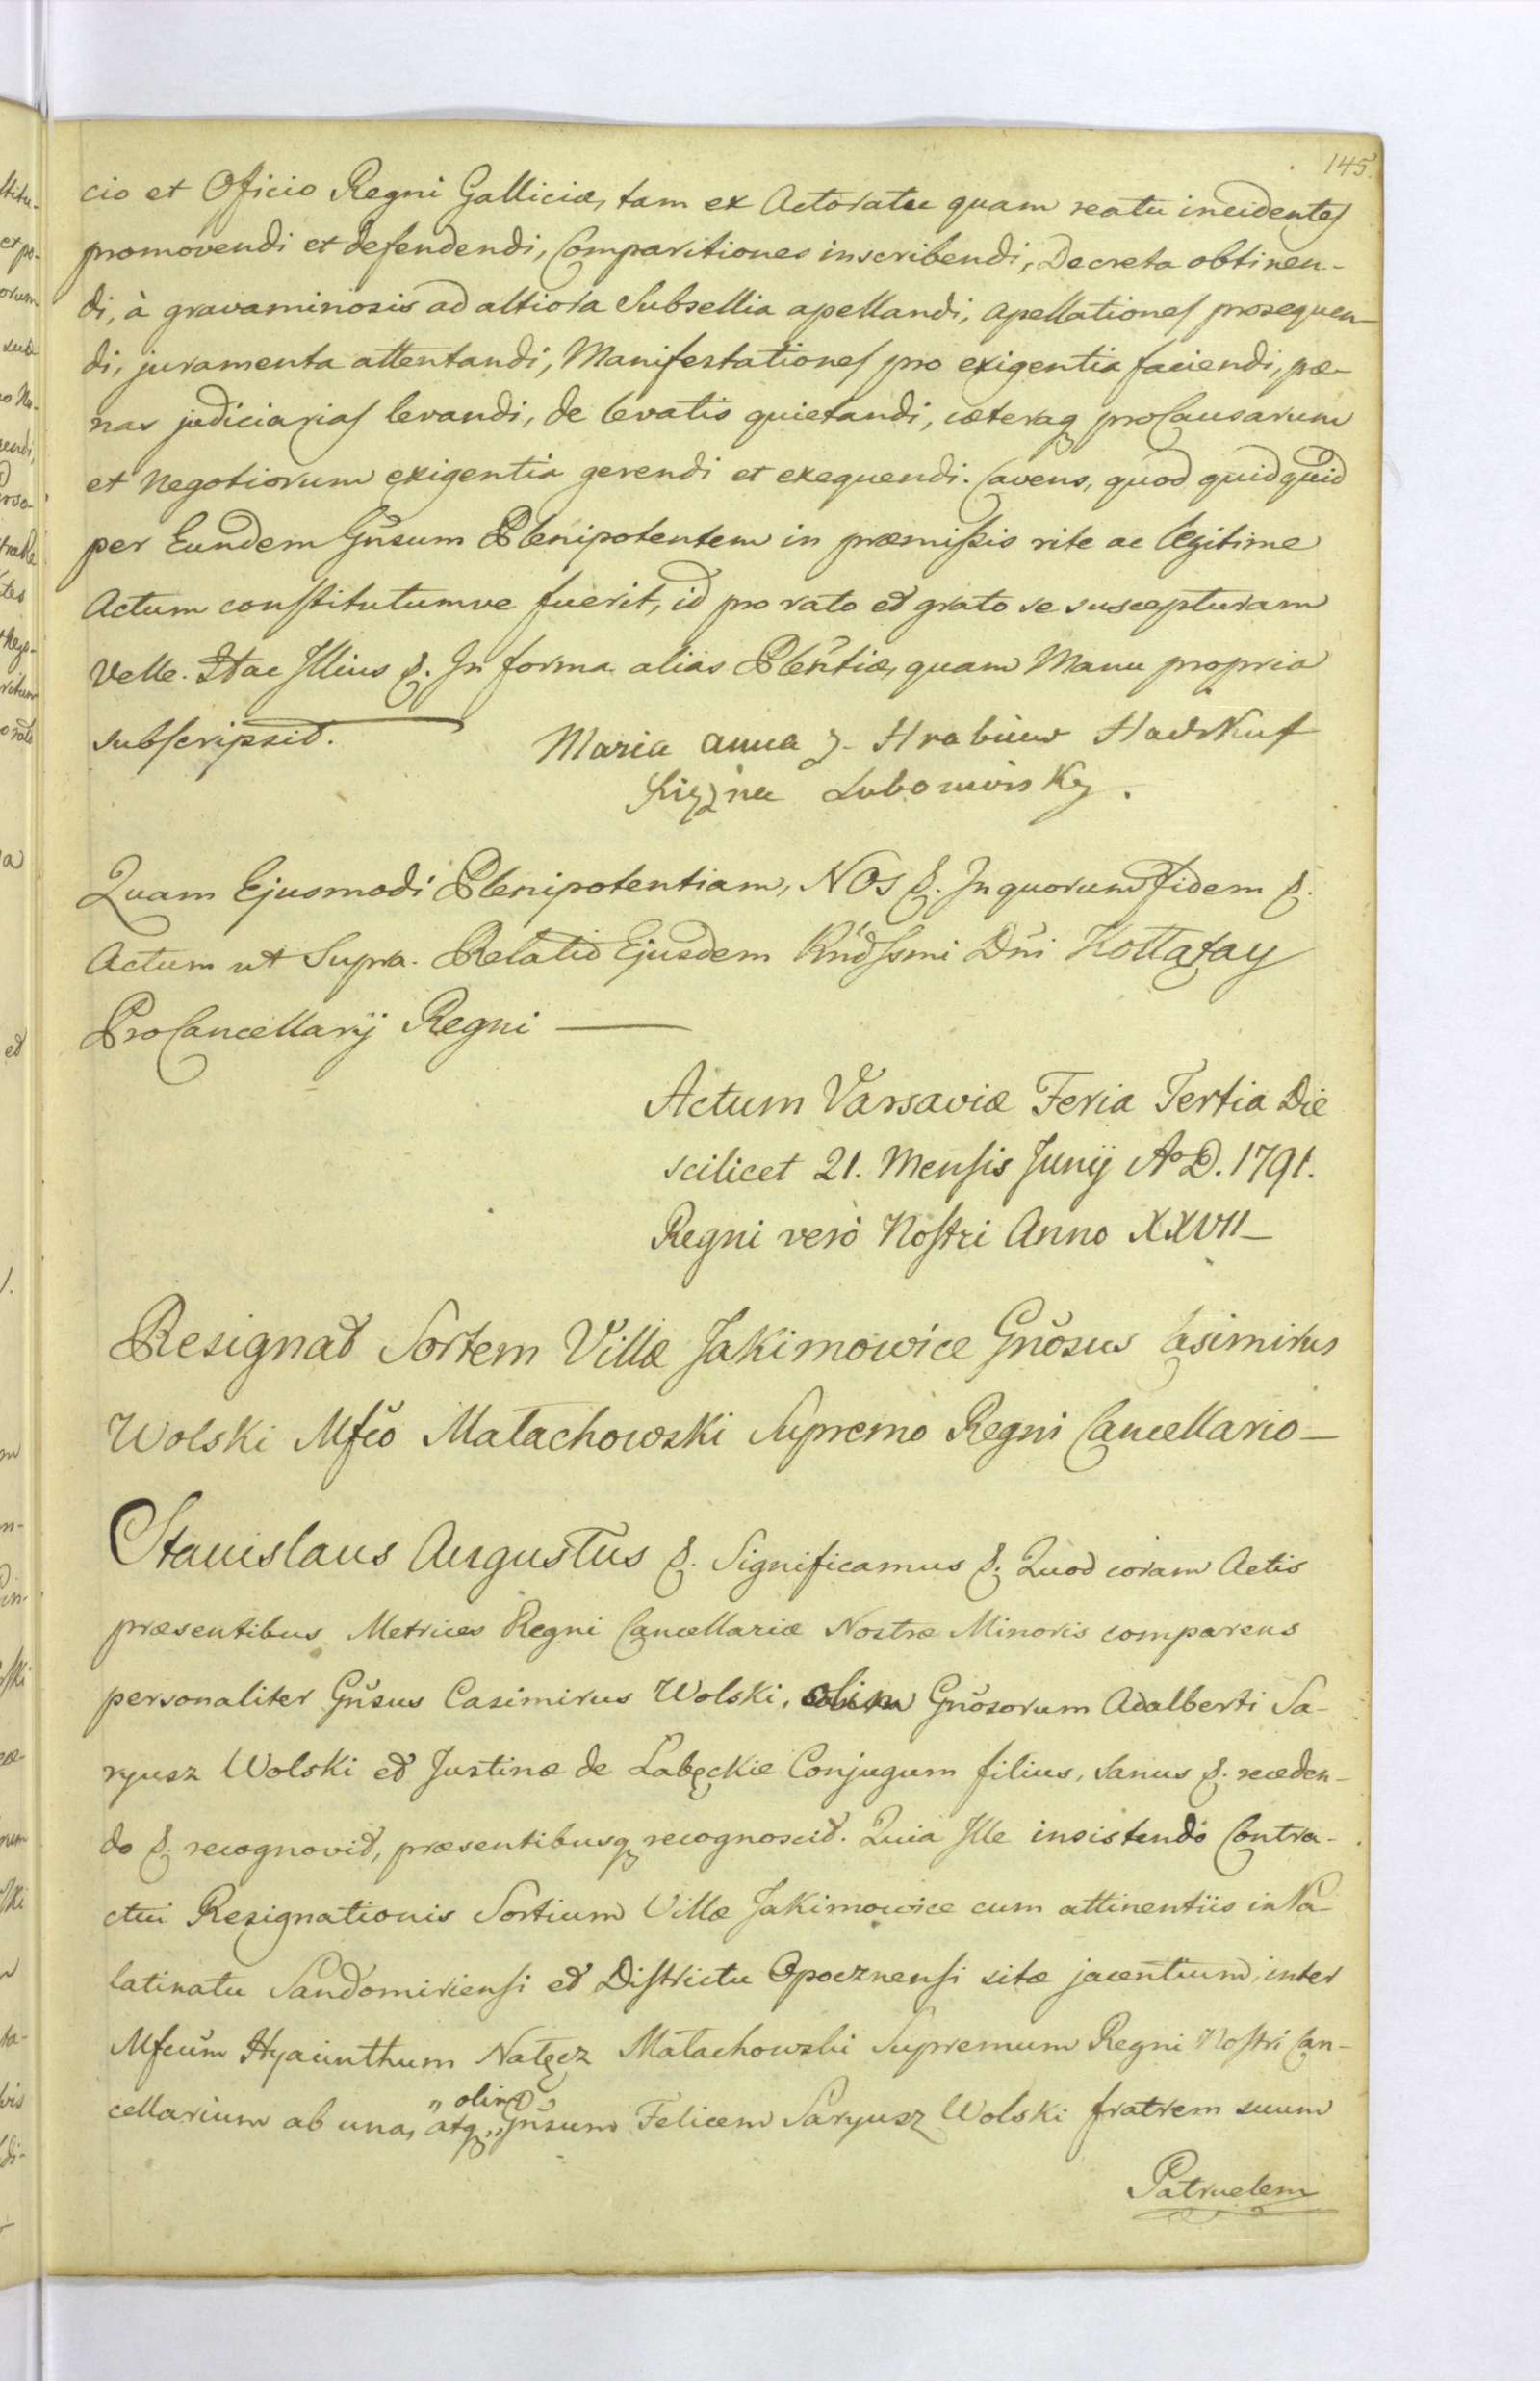 145.
cio et Oficio Regni Galliciæ, tam ex Actoratu quam reatu incidentes
promovendi et defendendi, Comparitiones inscribendi, Decreta obtinen-
di, à gravaminosis ad altiora Subsellia apellandi, apellationes prosequen-
di, juramenta attentandi, Manifestationes pro exigentia faciendi, pæ-
nas judiciarias levandi, de levatis quietandi, cæteraq pro Causarum
et Negotiorum exigentia gerendi et exequendi. Cavens, quod quidquid
per Eundem Gnsum Plenipotentem in præmissis rite ac legitime
Actum constitutumve fuerit, id pro rato et grato se suscepturam
Velle. Stae Illius &. In forma alias Plentiæ, quam Manu propria
subscripsit.
Maria anna z. Hrabiuw Hadikuf
Xiężna Lubomirsky.
Quam Ejusmodi Plenipotentiam, NOS &. In quorum Fidem &.
Actum ut Supra. Relatio Ejusdem Rndssmi Dni Kołłątay
ProCancellarij Regni —
Actum Varsaviæ Feria Tertia Die
scilicet 21. Mensis Junij Ao D. 1791.
Regni verò Nostri Anno XXVII_
Resignat Sortem Villæ Jakimowice Gnosus Casimirus
Wolski Mfco Małachowski Supremo Regni Cancellario—
Stanislaus Augustus &. Significamus &. Quod coram Actis
præsentibus Metrices Regni Cancellariæ Nostræ Minoris comparens
personaliter Gnsus Casimirus Wolski, olim Gnosorum Adalberti Sa-
ryusz Wolski et Justinæ de Łabęckie Conjugum filius, sanus &. receden-
do &. recognovit, præsentibusq recognoscit. Quia Ille insistendo Contra-
ctui Resignationis Sortium Villæ Jakimowice cum attinentiis in Pa-
latinatu Sandomiriensi et Districtu Opocznensi sitæ jacentium, inter
Mfcum Hyacinthum Nałęcz Małachowski Supremum Regni Nostri Can-
cellarium ab una, atq „ olim „ Gnsum Felicem Saryusz Wolski fratrem suum
Patruelem